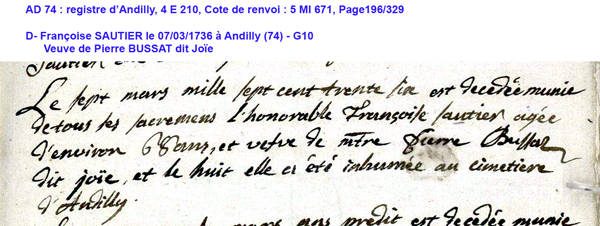 AD 74 : registre d'Andilly, 4 E 210, Cote de renvoi : 5 MI 671, Page196/329
D- Françoise SAUTIER le 07/03/1736 à Andilly (74) - G10
Veuve de Pierre BUSSAT dit Joïe
Le sept mars mille sept cent trente six est decedée munie
de tous les sacremens l'honorable Françoise sautier agée
d'environ 68 ans, et vefve de mtre Pierre Bussat
dit joïe, et le huit elle a été inhumée au cimetiere
d'Andilly.
mars predit est decedée munie